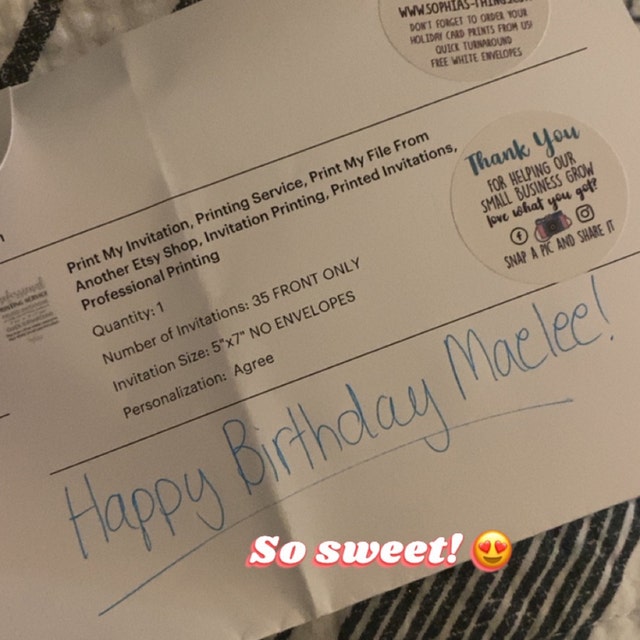 DON'T FORGET TO ORDER YOUR
HOLIDAY CARD PRINTS FROM US!
QUICK TURNAROUND
FREE WHITE ENVELOPES
Thank You
FOR HELPING OUR
SMALL BUSINESS GROW
love what you got?
SNAP A PIC AND SHARE IT
Print My Invitation, Printing Service, Print My File From
Another Etsy Shop, Invitation Printing, Printed Invitations,
Professional Printing
Quantity: 1
Number of Invitations: 35 FRONT ONLY
Invitation Size: 5"x7" NO ENVELOPES
Personalization: Agree
Happy Birthday Maelee!
So sweet! 😍